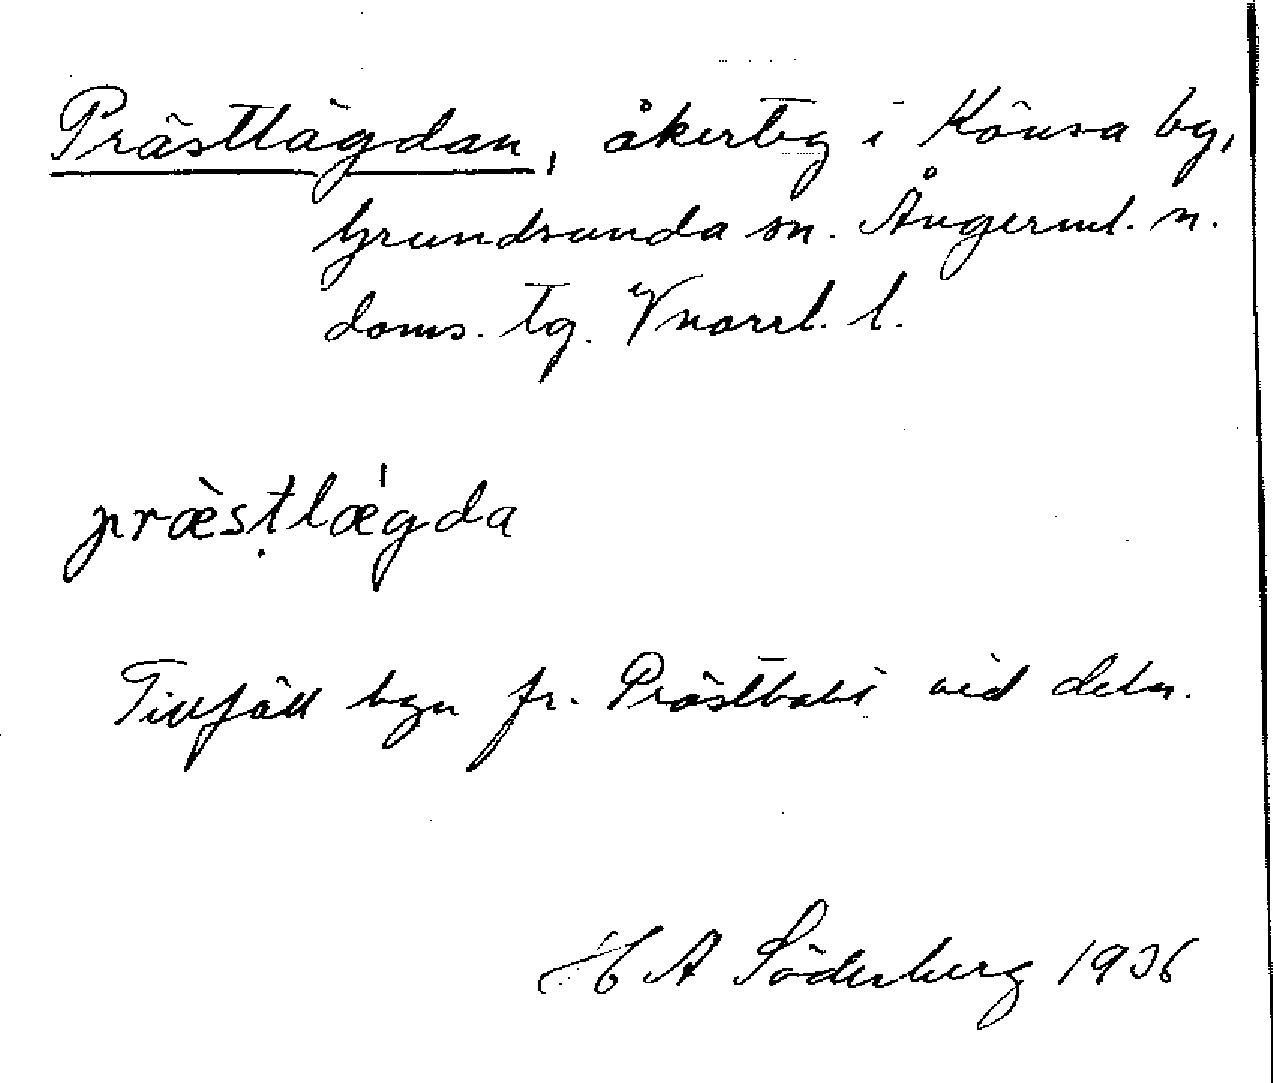 Prästlägdan, åkerteg i Könsa by,
Grundsunda sn. Ångerml. n.
doms. tg. Vnorrl. l.
præ̀stlǽgda
Tillföll byn fr. Prästbolet vid deln.
H A Söderberg 1936